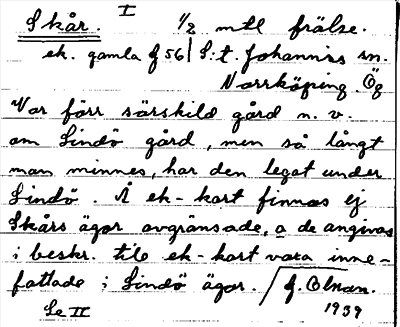 Skår. I 1/2 mtl frälse.
ek. gamla f 56| S:t. Johannis sn.
Norrköping. Ög
Var förr särskild gård n. v.
om Lindö gård, men så långt
man minnes, har den legat under
Lindö. Å ek-kart finnas ej
Skårs ägor avgränsade, a de angivas
i beskr. till ek-kart vara inne-
fattade i Lindö ägor. / J. Elman.
Se II 1939